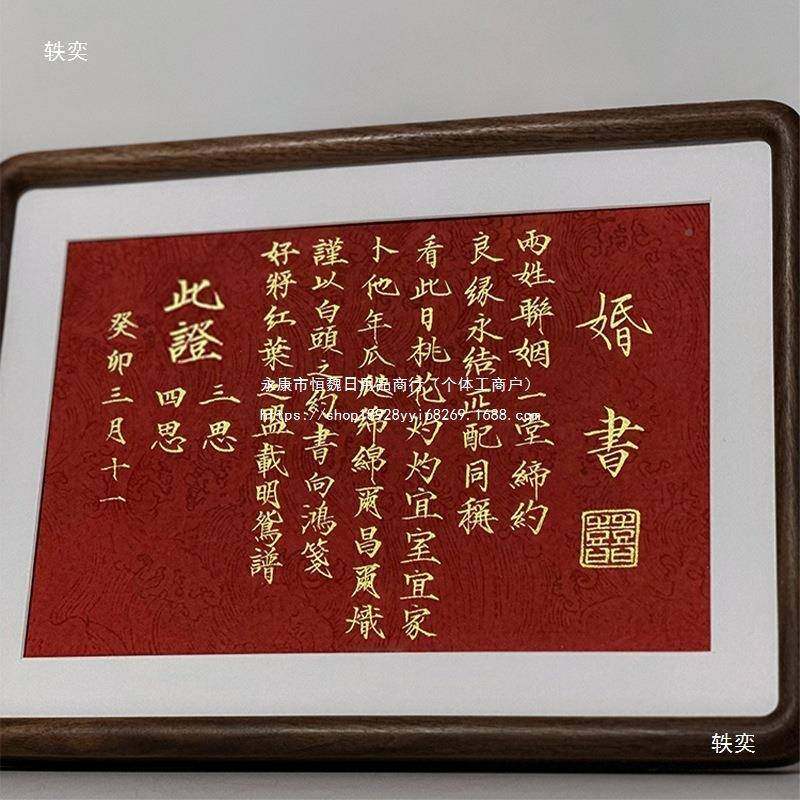 轶奕
婚書
兩姓聯姻一堂締約
良缘永结匹配同稱
看此日桃花灼灼宜室宜家
卜他年瓜瓞绵綿爾昌爾熾
謹以白頭之約書向鴻箋
好将红葉之盟載明鴛譜
此證
三思
四思
癸卯三月十一
永康市恒魏日用品商行（个体工商户）
轶奕